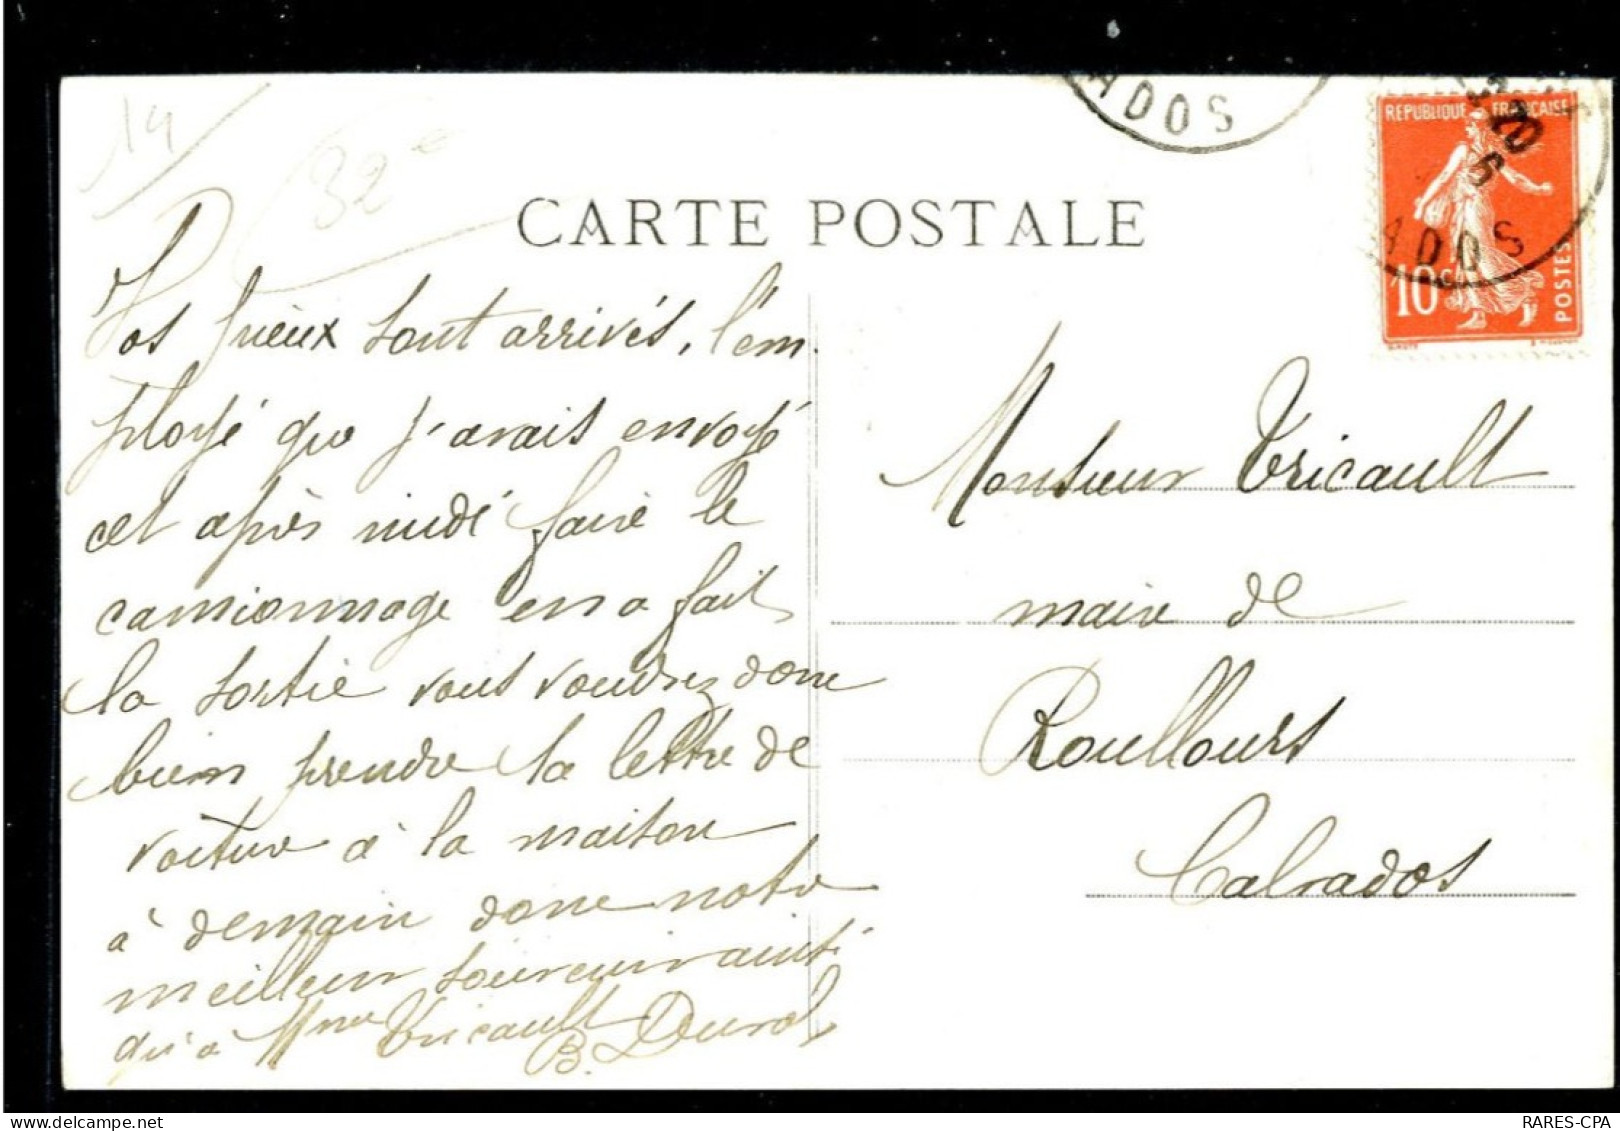 14
32 €
CARTE POSTALE
ADOS
REPUBLIQUE FRANCAISE
10c
POSTES
ADOS
Vos frieux sont arrivés, l'em.
ployé que j'avais envoyé
cet après midi faire le
camionnage en a fait
la sortie vous voudrez donc
bien prendre la lettre de
voiture à la maison
à demain donc notre
meilleur souvenir ainsi
qu'à Mme Tricault
B. Duval
Monsieur Tricault
maire de
Roullours
Calvados
RARES-CPA